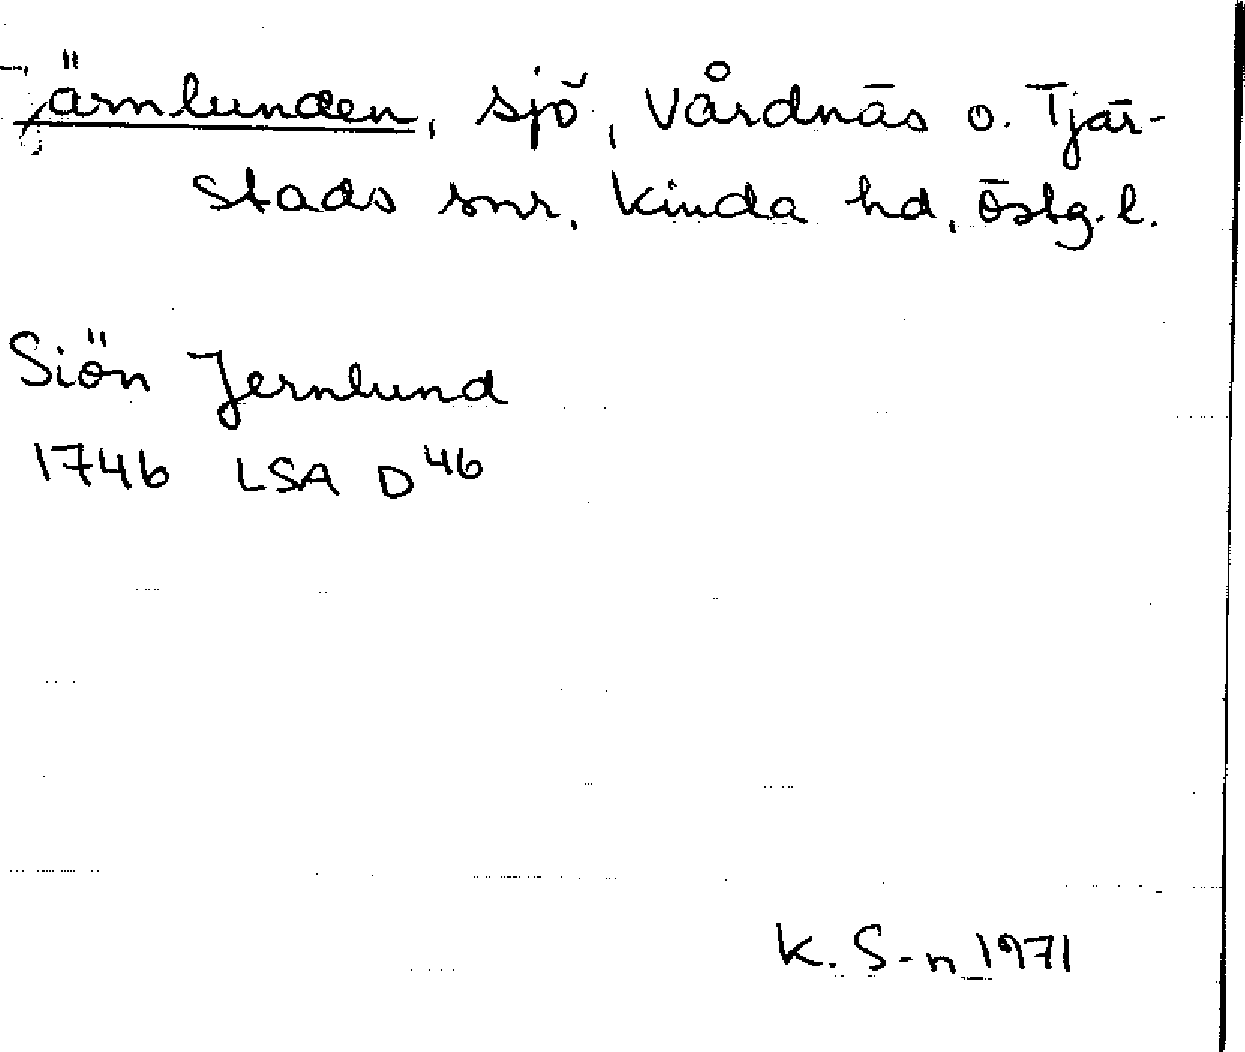 Järnlunden, sjö, Vårdnäs o. Tjär-
stads snr, Kinda hd, Östg. l.
Siön Jernlund
1746 LSA D46
K. S-n 1971